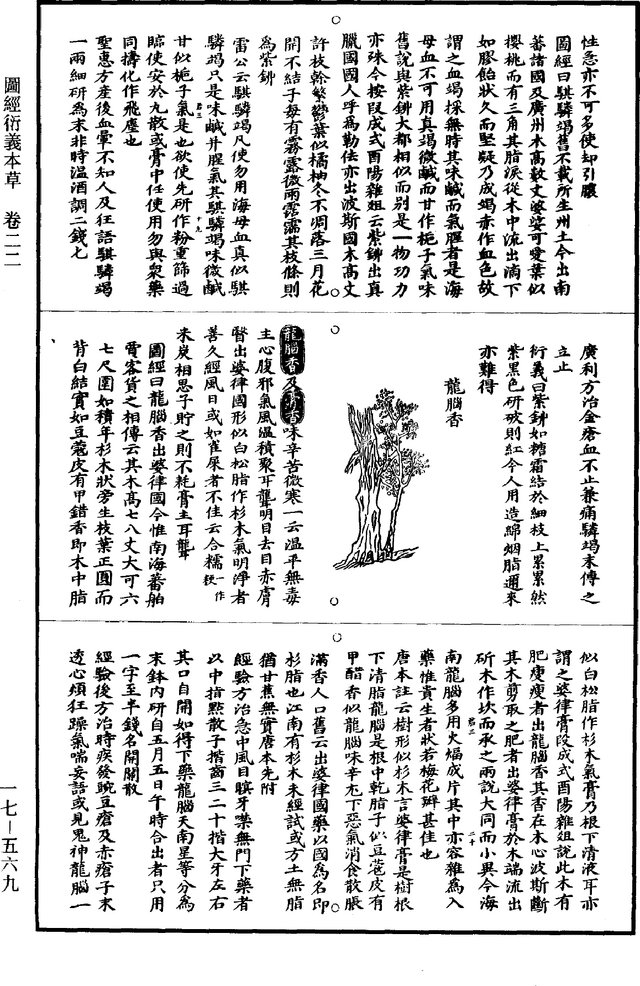 性急亦不可多使却引膿
圖經曰騏驎竭舊不載所生州土今出南
蕃諸國及廣州木高數丈婆娑可愛葉似
櫻桃而有三角其脂液從木中流出滴下
如膠飴狀久而堅凝乃成竭赤作血色故
謂之血竭採無時其味鹹而氣腥者是海
母血不可用真竭微鹹而甘作梔子氣味
舊說與紫鉚大都相似而别是一物功力
亦殊今按段成式酉陽雜俎云紫鉚出真
臘國國人呼為勒佉亦出波斯國木高丈
許枝幹繁鬱葉似橘柚冬不凋落三月花
開不結子每有霧露微雨霑濡其枝條則
為紫鉚
雷公云騏驎竭凡使勿用海母血真似騏
驎竭只是味鹹并腥氣其騏驎竭味微鹹
甘似梔子氣是也欲使先研作粉重篩過
臨使安於九散或膏中任使用勿與衆藥
同擣化作飛塵也
聖惠方產後血暈不知人及狂語騏驎竭
一兩細研為末非時温酒調二錢七
廣利方治金瘡血不止兼痛驎竭末傅之
立止
衍義曰紫鉚如糖霜結於細枝上累累然
紫黑色研破則紅今人用造綿烟脂邇來
亦難得
龍腦香
龍腦香及膏香味辛苦微寒一云温平無毒
主心腹邪氣風濕積聚耳聾明目去目赤膚
瞖出婆律國形似白松脂作杉木氣明淨者
善久經風日或如雀屎者不佳云合糯一作粳
米炭相思子貯之則不耗膏主耳聾
圖經曰龍腦香出婆律國今惟南海蕃舶
賈客貨之相傳云其木高七八丈大可六
七尺圍如積年杉木狀旁生枝葉正圓而
背白結實如豆蔻皮有甲錯香即木中脂
似白松脂作杉木氣膏乃根下清液耳亦
謂之婆律膏段成式酉陽雜俎說此木有
肥瘦瘦者出龍腦香其香在木心波斯斷
其木剪取之肥者出婆律膏於木端流出
斫木作坎而承之兩說大同而小異今海
南龍腦多用火煏成片其中亦容雜偽入
藥惟貴生者狀若梅花瓣甚佳也
唐本註云樹形似杉木言婆律膏是樹根
下清脂龍腦是根中乾脂子似豆蔻皮有
甲醋香似龍腦味辛尤下惡氣消食散脹
滿香人口舊云出婆律國藥以國為名即
杉脂也江南有杉木未經試或方土無脂
猶甘蕉無實唐本先附
經驗方治急中風目瞑牙噤無門下藥者
以中指點散子揩齒三二十揩大牙左右
其口自開始得下藥龍腦天南星等分為
末鉢内研自五月五日午時合出者只用
一字至半錢名開關散
經驗後方治時疾發豌豆瘡及赤瘡子未
透心煩狂躁氣喘妄語或見鬼神龍腦一
圖經衍義本草　卷二二
一七—五六九